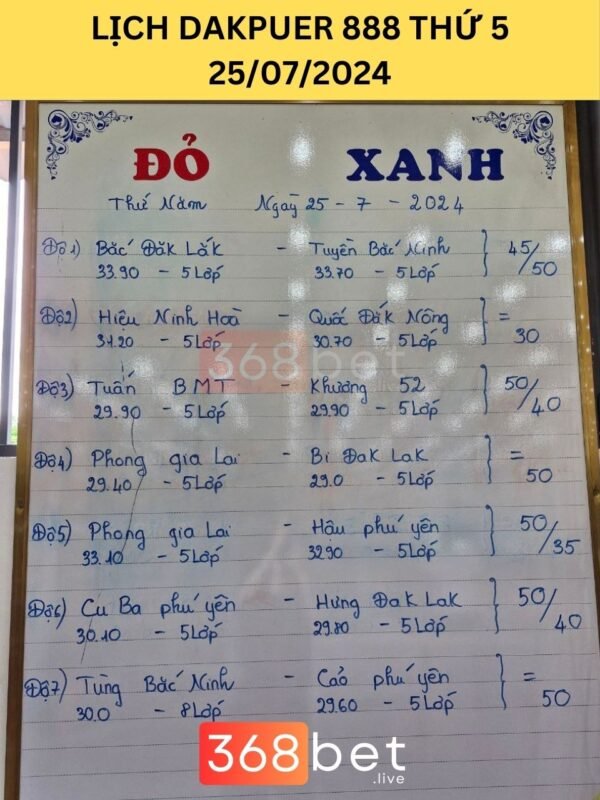 LỊCH DAKPUER 888 THỨ 5
25/07/2024
ĐỎ XANH
Thứ Năm Ngaỳ 25 - 7 - 2024
Độ 1) Bắc Đăk Lắk - Tuyền Bắc Ninh } 45/50
33.90 - 5 Lốp 33.70 - 5 Lốp
Độ2) Hiệu Ninh Hoà - Quốc Đắk Nông } = 30
31.20 - 5 Lốp 30.70 - 5 Lốp
368bet
.live
Độ3) Tuấn BMT - Khương 52 } 50/40
29.90 - 5 Lốp 29.90 - 5 Lốp
Độ4) Phong gia Lai - Bi Đak Lak } = 50
29.40 - 5 Lốp 29.0 - 5 Lốp
Độ5) Phong gia Lai - Hậu phú yên } 50/35
33.10 - 5 Lốp 32.90 - 5 Lốp
Độ6) Cu Ba phú yên - Hưng Đak Lak } 50/40
30.10 - 5 Lốp 29.80 - 5 Lốp
Độ7) Tùng Bắc Ninh - Cao phú yên } = 50
30.0 - 8 Lốp 29.60 - 5 Lốp
368bet
.live